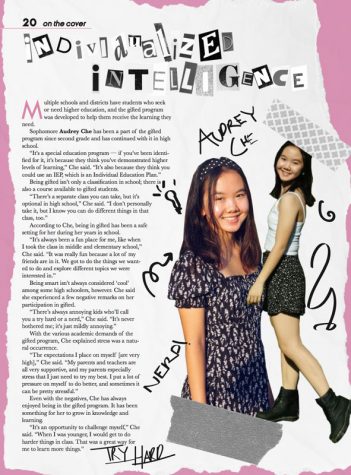 20 on the cover
individualized
intelligence
Multiple schools and districts have students who seek
or need higher education, and the gifted program
was developed to help them receive the learning they
need.
Sophomore Audrey Che has been a part of the gifted
program since second grade and has continued with it in high
school.
"It's a special education program — if you've been identi-
fied for it, it's because they think you've demonstrated higher
levels of learning," Che said. "It's also because they think you
could use an IEP, which is an Individual Education Plan."
Being gifted isn't only a classification in school; there is
also a course available to gifted students.
"There's a separate class you can take, but it's
optional in high school," Che said. "I don't personally
take it, but I know you can do different things in that
class, too."
According to Che, being in gifted has been a safe
setting for her during her years in school.
"It's always been a fun place for me, like when
I took the class in middle and elementary school,"
Che said. "It was really fun because a lot of my
friends are in it. We got to do the things we want-
ed to do and explore different topics we were
interested in."
Being smart isn't always considered 'cool'
among some high schoolers, however. Che said
she experienced a few negative remarks on her
participation in gifted.
"There's always annoying kids who'll call
you a try hard or a nerd," Che said. "It's never
bothered me; it's just mildly annoying."
With the various academic demands of the
gifted program, Che explained stress was a natu-
ral occurrence.
"The expectations I place on myself [are very
high]," Che said. "My parents and teachers are
all very supportive, and my parents especially
stress that I just need to try my best. I put a lot of
pressure on myself to do better, and sometimes it
can be pretty stressful."
Even with the negatives, Che has always
enjoyed being in the gifted program. It has been
something for her to grow in knowledge and
learning.
"It's an opportunity to challenge myself," Che
said. "When I was younger, I would get to do
harder things in class. That was a great way for
me to learn more things."
AUDREY
CHE
NERD!
TRY HARD